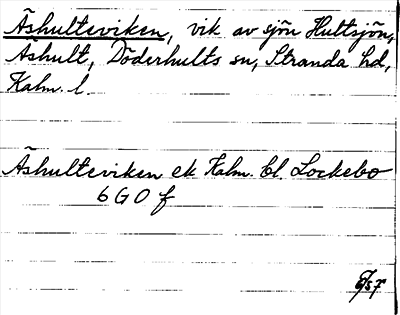 Äshulteviken, vik av sjön Hultsjön,
Äshult, Döderhults sn, Stranda hd,
Kalm. l.
Äshulteviken ek Kalm. bl. Lockebo
6 G 0 f